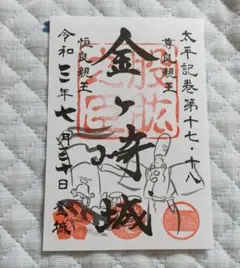 太平記巻第十七・十八
尊良親王
金ヶ崎城
恒良親王
令和三年七月三十日
股肱之臣